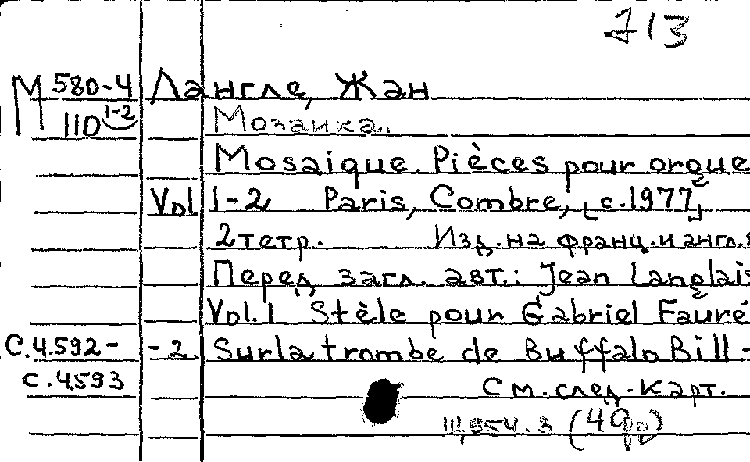 713
М 580-4 Лангле, Жан
110 1-2 Мозаика.
Mosaique. Pièces pour orgue
Vol 1-2 Paris, Combre, [c.1977]
2 тетр. Изд. на франц. и англ. я
Перед загл. авт.: Jean Langlais
Vol. 1 Stèle pour Gabriel Fauré
С.4.592- - 2 Sur la trombe de Buffalo Bill -
с.4593 См. след. карт.
(49